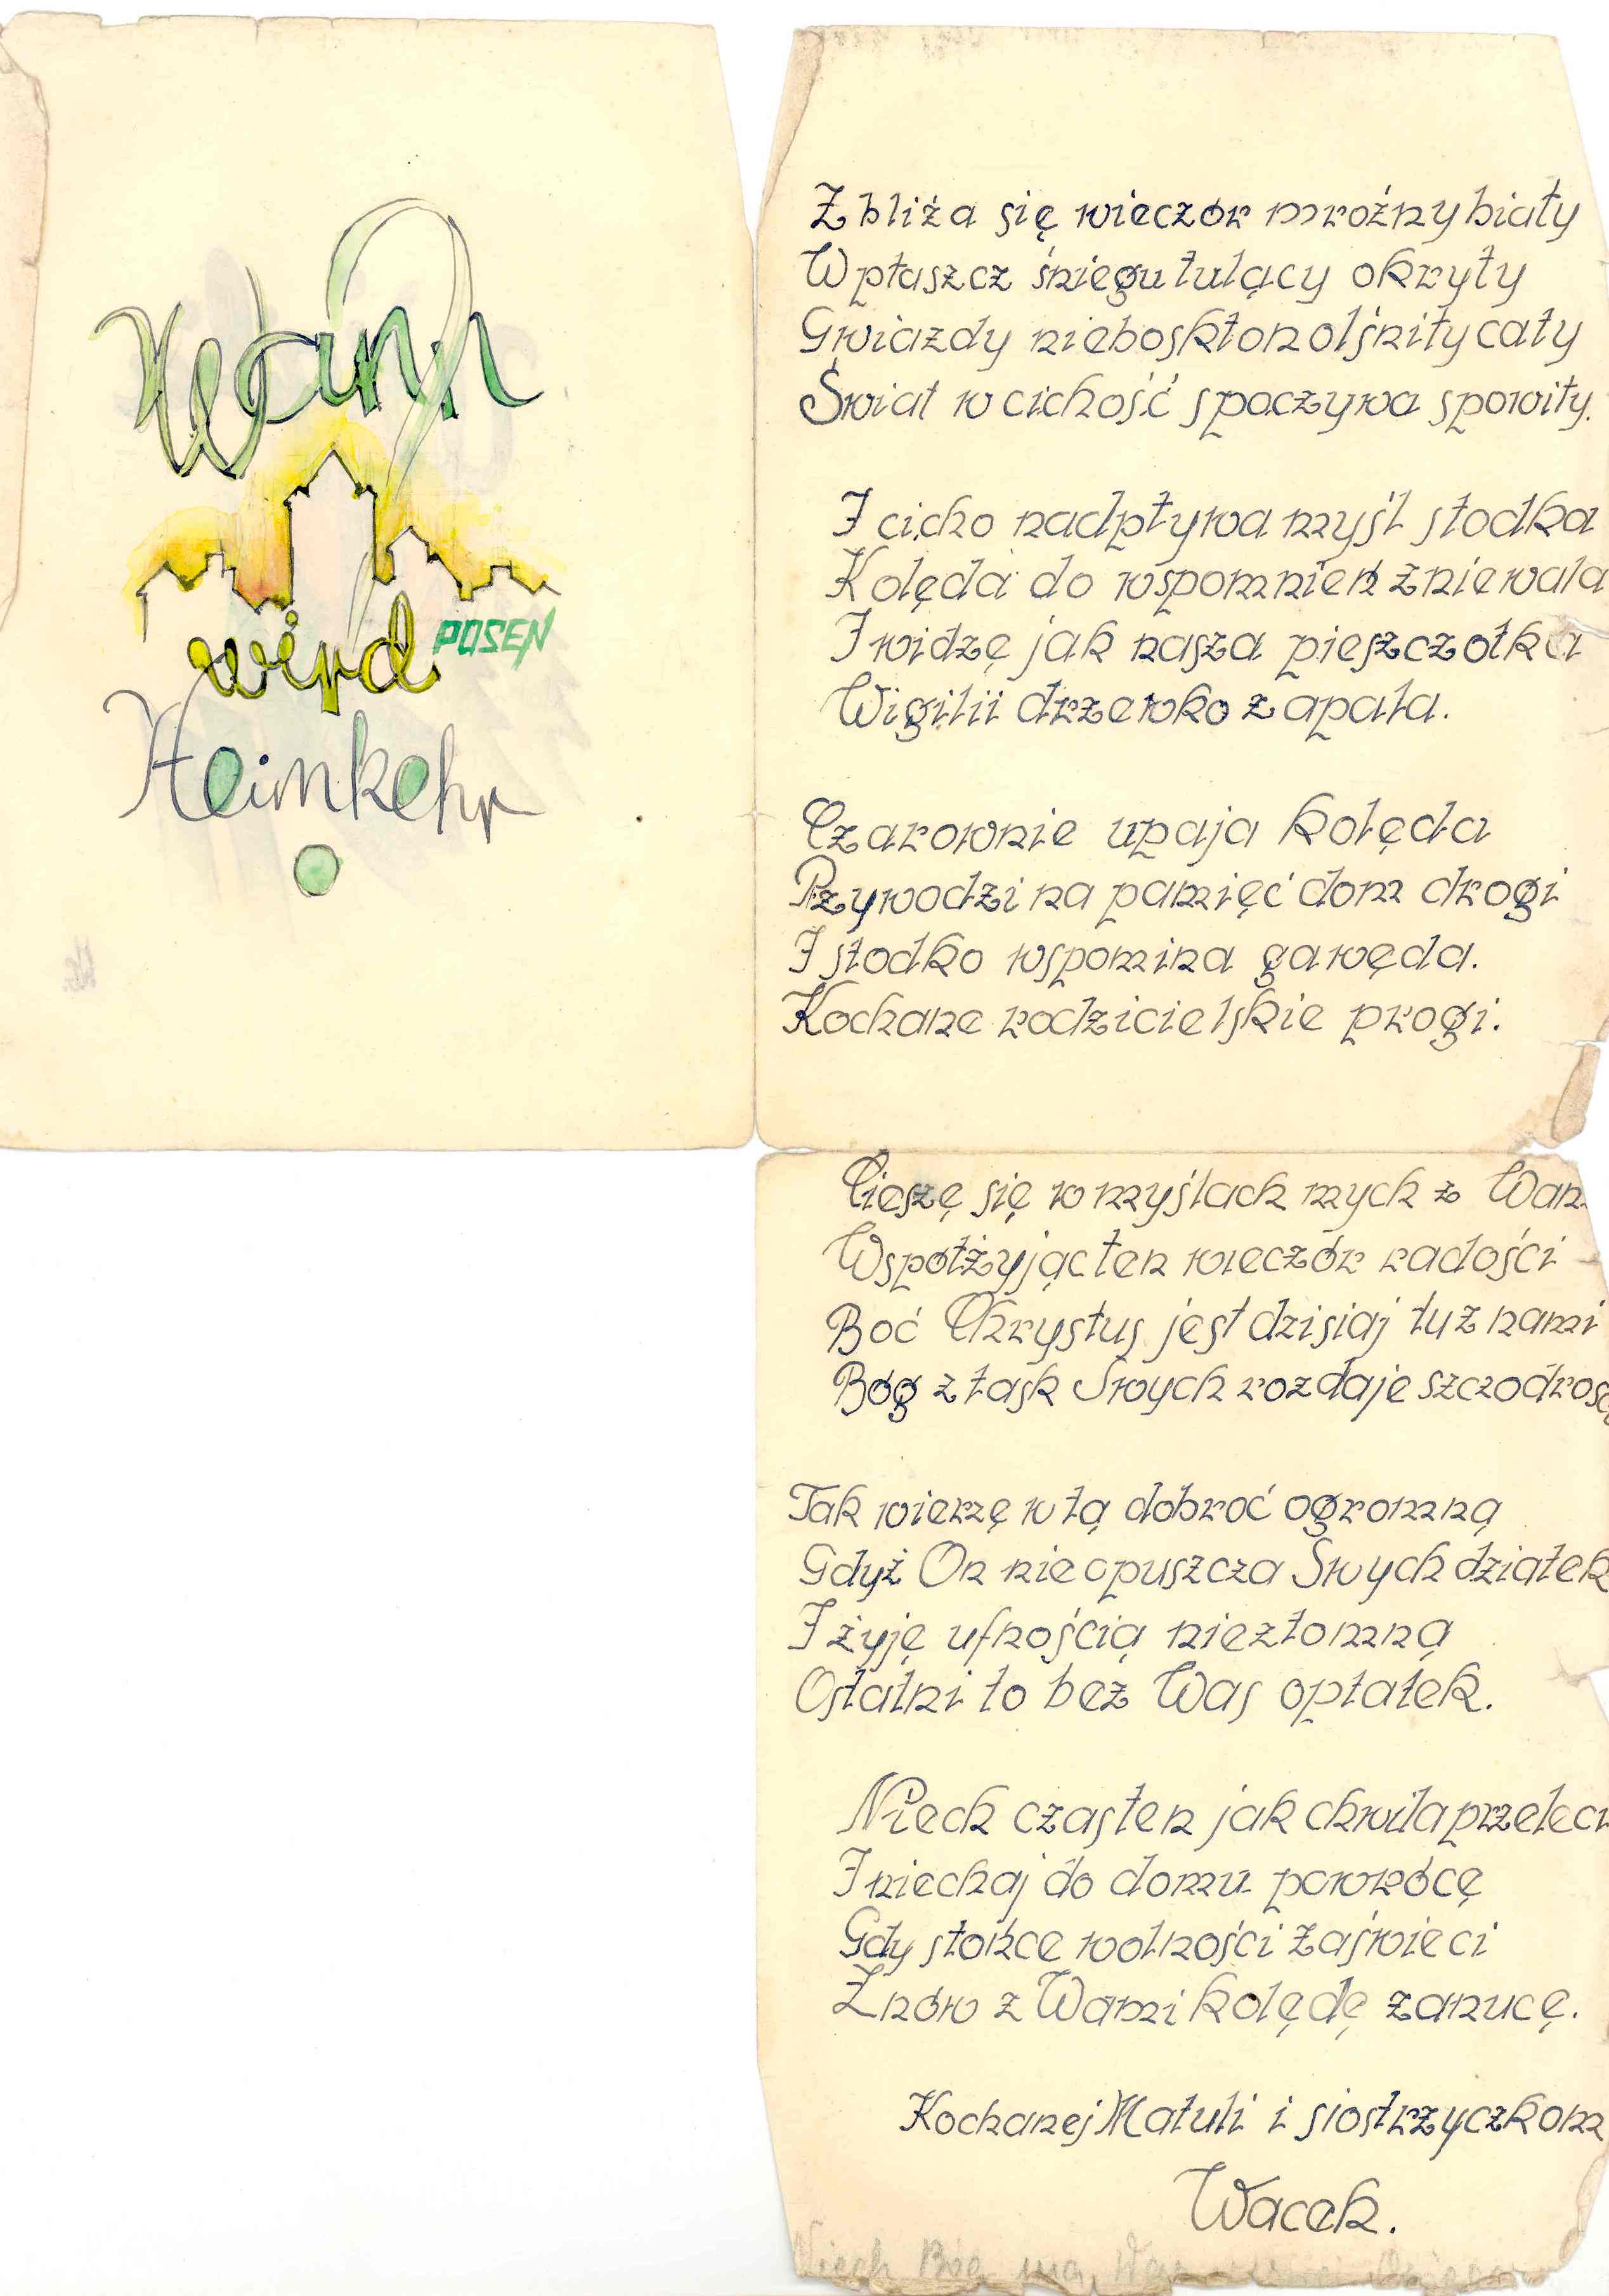 Wann
wird
POSEN
Heimkehr
Zbliża się wieczór mroźny biały
W płaszcz śniegu tulący okryty
Gwiazdy nieboskłon olśniły cały
Świat w cichość spoczywa spowity.
I cicho nadpływa myśl słodka
Kolęda do wspomnień zniewala
I widzę jak nasza pieszczotka
Wigilii drzewko zapala.
Czarownie upaja kolęda
Przywodzi na pamięć dom drogi
I słodko wspomina gawęda.
Kochane rodzicielskie progi.
Cieszę się w myślach mych z Wam
Wspołżyjąc ten wieczór radości
Boć Chrystus jest dzisiaj tu z nami
Bóg z łask Swych rozdaje szczodrość
Tak wierzę w tą dobroć ogromną
Gdyż On nie opuszcza Swych dziatek
I żyję ufnością niezłomną
Ostatni to bez Was opłatek.
Niech czas ten jak chwila przeleci
I niechaj do domu powrócę
Gdy słońce wolności zaświeci
Znów z Wami kolędę zanucę.
Kochanej Matuli i siostrzyczkom
Wacek.
Niech Bóg ma Was